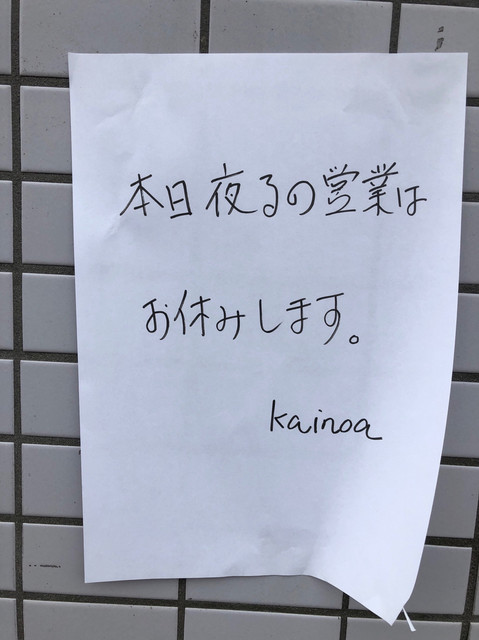 本日夜るの営業は
お休みします。
kainoa